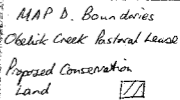 MAP D. Boundaries
Obelisk Creek Pastoral Lease
Proposed Conservation
Land